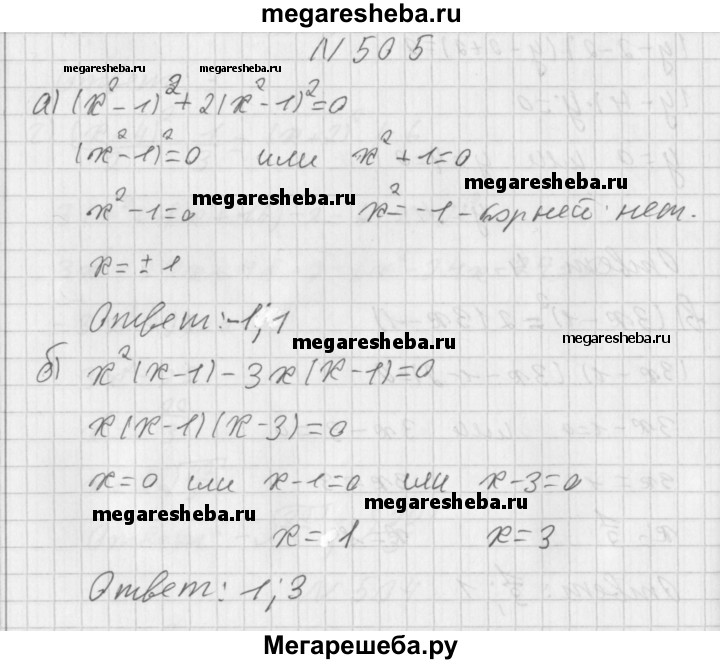 megaresheba.ru
N 505
megaresheba.ru megaresheba.ru
а) (x² - 1)² + 2(x² - 1)² = 0
(x² - 1)² = 0 или x² + 1 = 0
megaresheba.ru
x² - 1 = 0 x² = -1 - корней нет.
megaresheba.ru
x = ± 1
Ответ: -1; 1
megaresheba.ru megaresheba.ru
б) x²(x - 1) - 3x(x - 1) = 0
x(x - 1)(x - 3) = 0
x = 0 или x - 1 = 0 или x - 3 = 0
megaresheba.ru megaresheba.ru
x = 1 x = 3
Ответ: 1; 3
Мегарешеба.ру